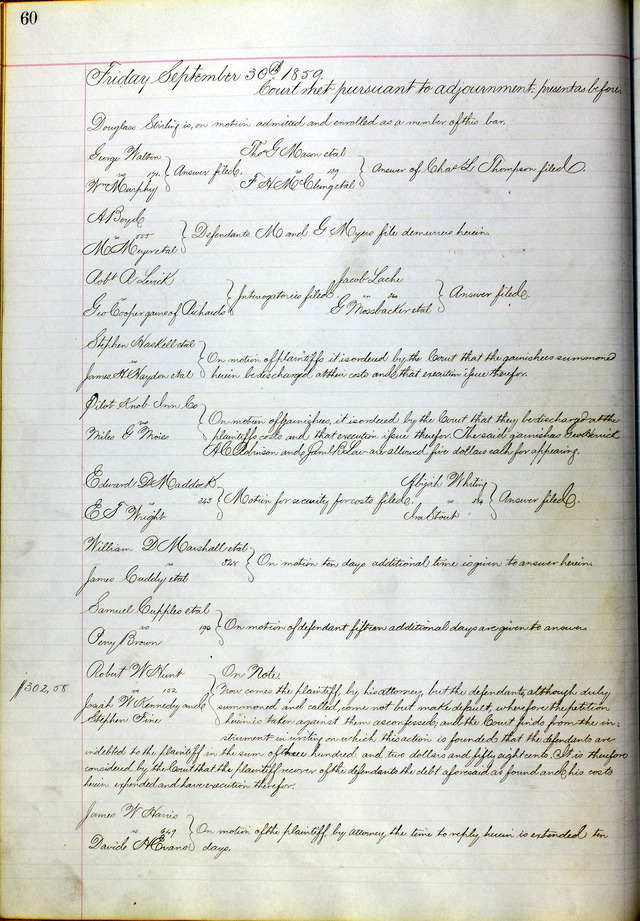 60
Friday September 30th 1859.
Court met pursuant to adjournment, present as before.
Douglass Stirling is, on motion admitted and enrolled as a member of this bar.
George Walton
vs 171. Answer filed.
Wm Murphy
Thos G Mason etal
vs 159 Answer of Chas L Thompson filed.
F H McClung etal
A Boyd
vs 555 Defendants M and G Myers file demurrer herein.
M Meyer etal
Robt A
vs Interrogatories filed
Geo Cooper garnee of Richards
Jacob Lache
vs Answer filed.
G Mossbacker etal
Stephen Haskell etal
vs On motion of plaintiffs it is ordered by the Court that the garnishees summoned
James H Haydon etal herein be discharged at their costs and that execution issue therefor.
Pilot Knob Iron Co
vs On motion of Garnishees, it is ordered by the Court that they be discharged at the
Miles G Moies plaintiffs costs and that execution issue therefor. The said garnishees
A C Robinson and are allowed five dollars each for appearing.
Edward D Maddock
vs 343 Motion for security for costs filed.
E T Wright
Abijah Whiting
vs Answer filed.
Ira Stout
William D Marshall etal
vs 528 On motion ten days additional time is given to answer herein.
James Cuddy etal
Samuel Cupples etal
vs 190 On motion of defendant fifteen additional days are given to answer
Peny Brown
Robert W Hunt On Note.
$302,58 vs 152 Now comes the plaintiff, by his attorney, but the defendants, although duly
Josiah W Kennedy and summoned and called, come not but make default, wherefore the petition
Stephen Fine herein is taken against them as confessed, and the Court finds from the in-
strument in writing on which this action is founded that the defendants are
indebted to the plaintiff in the sum of three hundred and two dollars and fifty eight cents. It is therefore
considered by the Court that the plaintiff recover of the defendants the debt aforesaid as found and his costs
herein expended and have execution therefor.
James W Harris
vs 649 On motion of the plaintiff, by attorney, the time to reply herein is extended ten
Davide A Evans days.